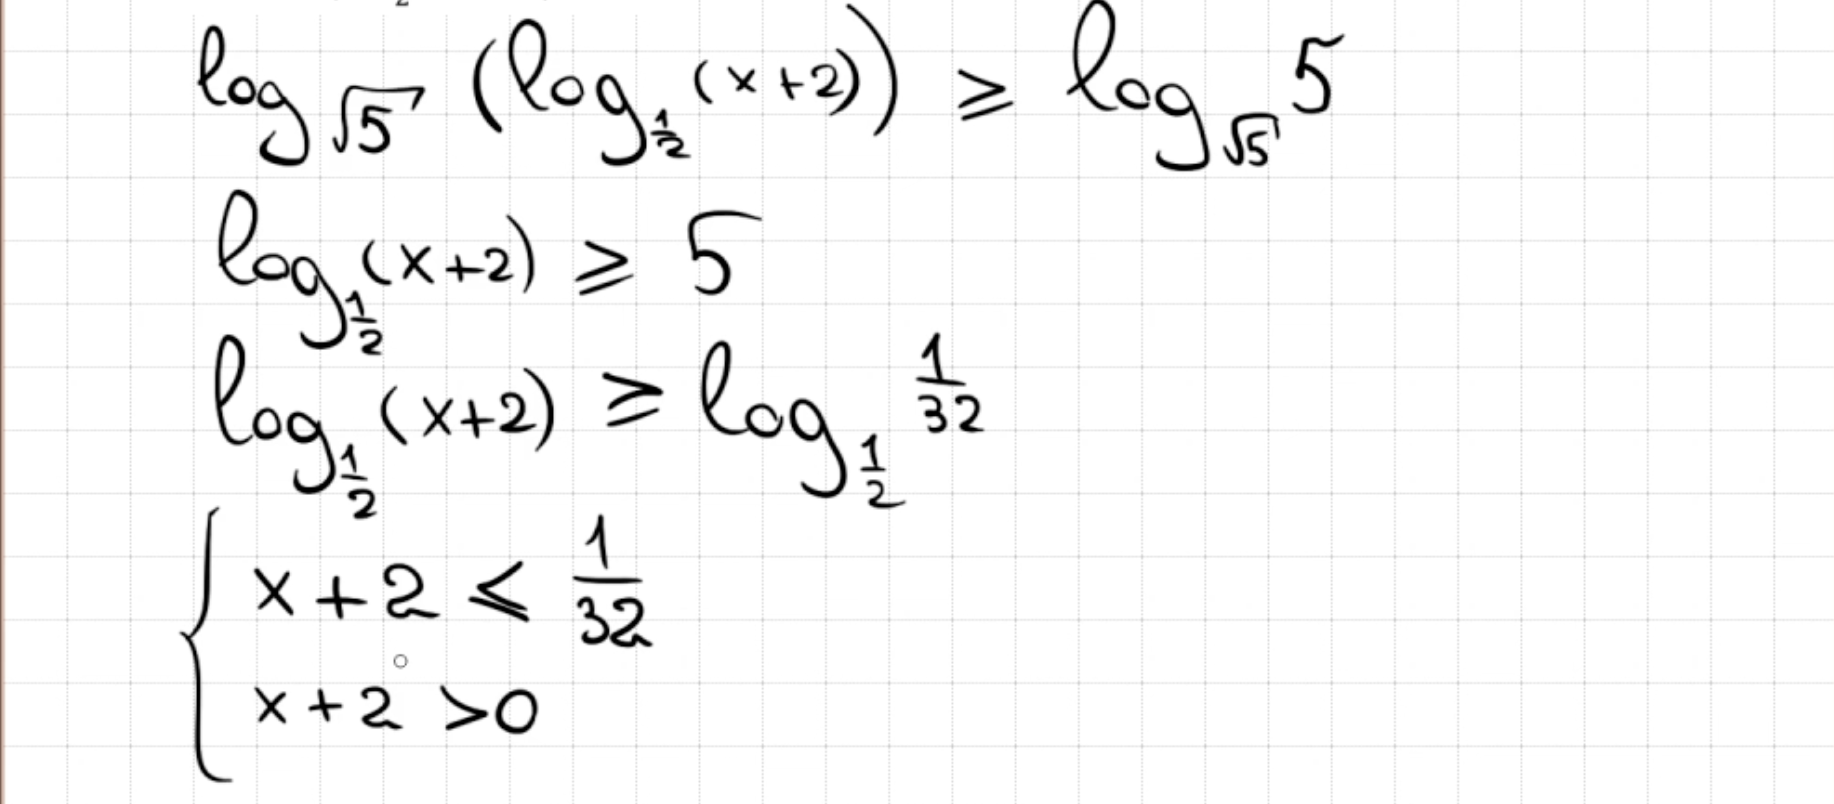 log_√5 (log_1/2 (x+2)) ⩾ log_√5 5
log_1/2 (x+2) ⩾ 5
log_1/2 (x+2) ⩾ log_1/2 1/32
x+2 ⩽ 1/32
x+2 >0